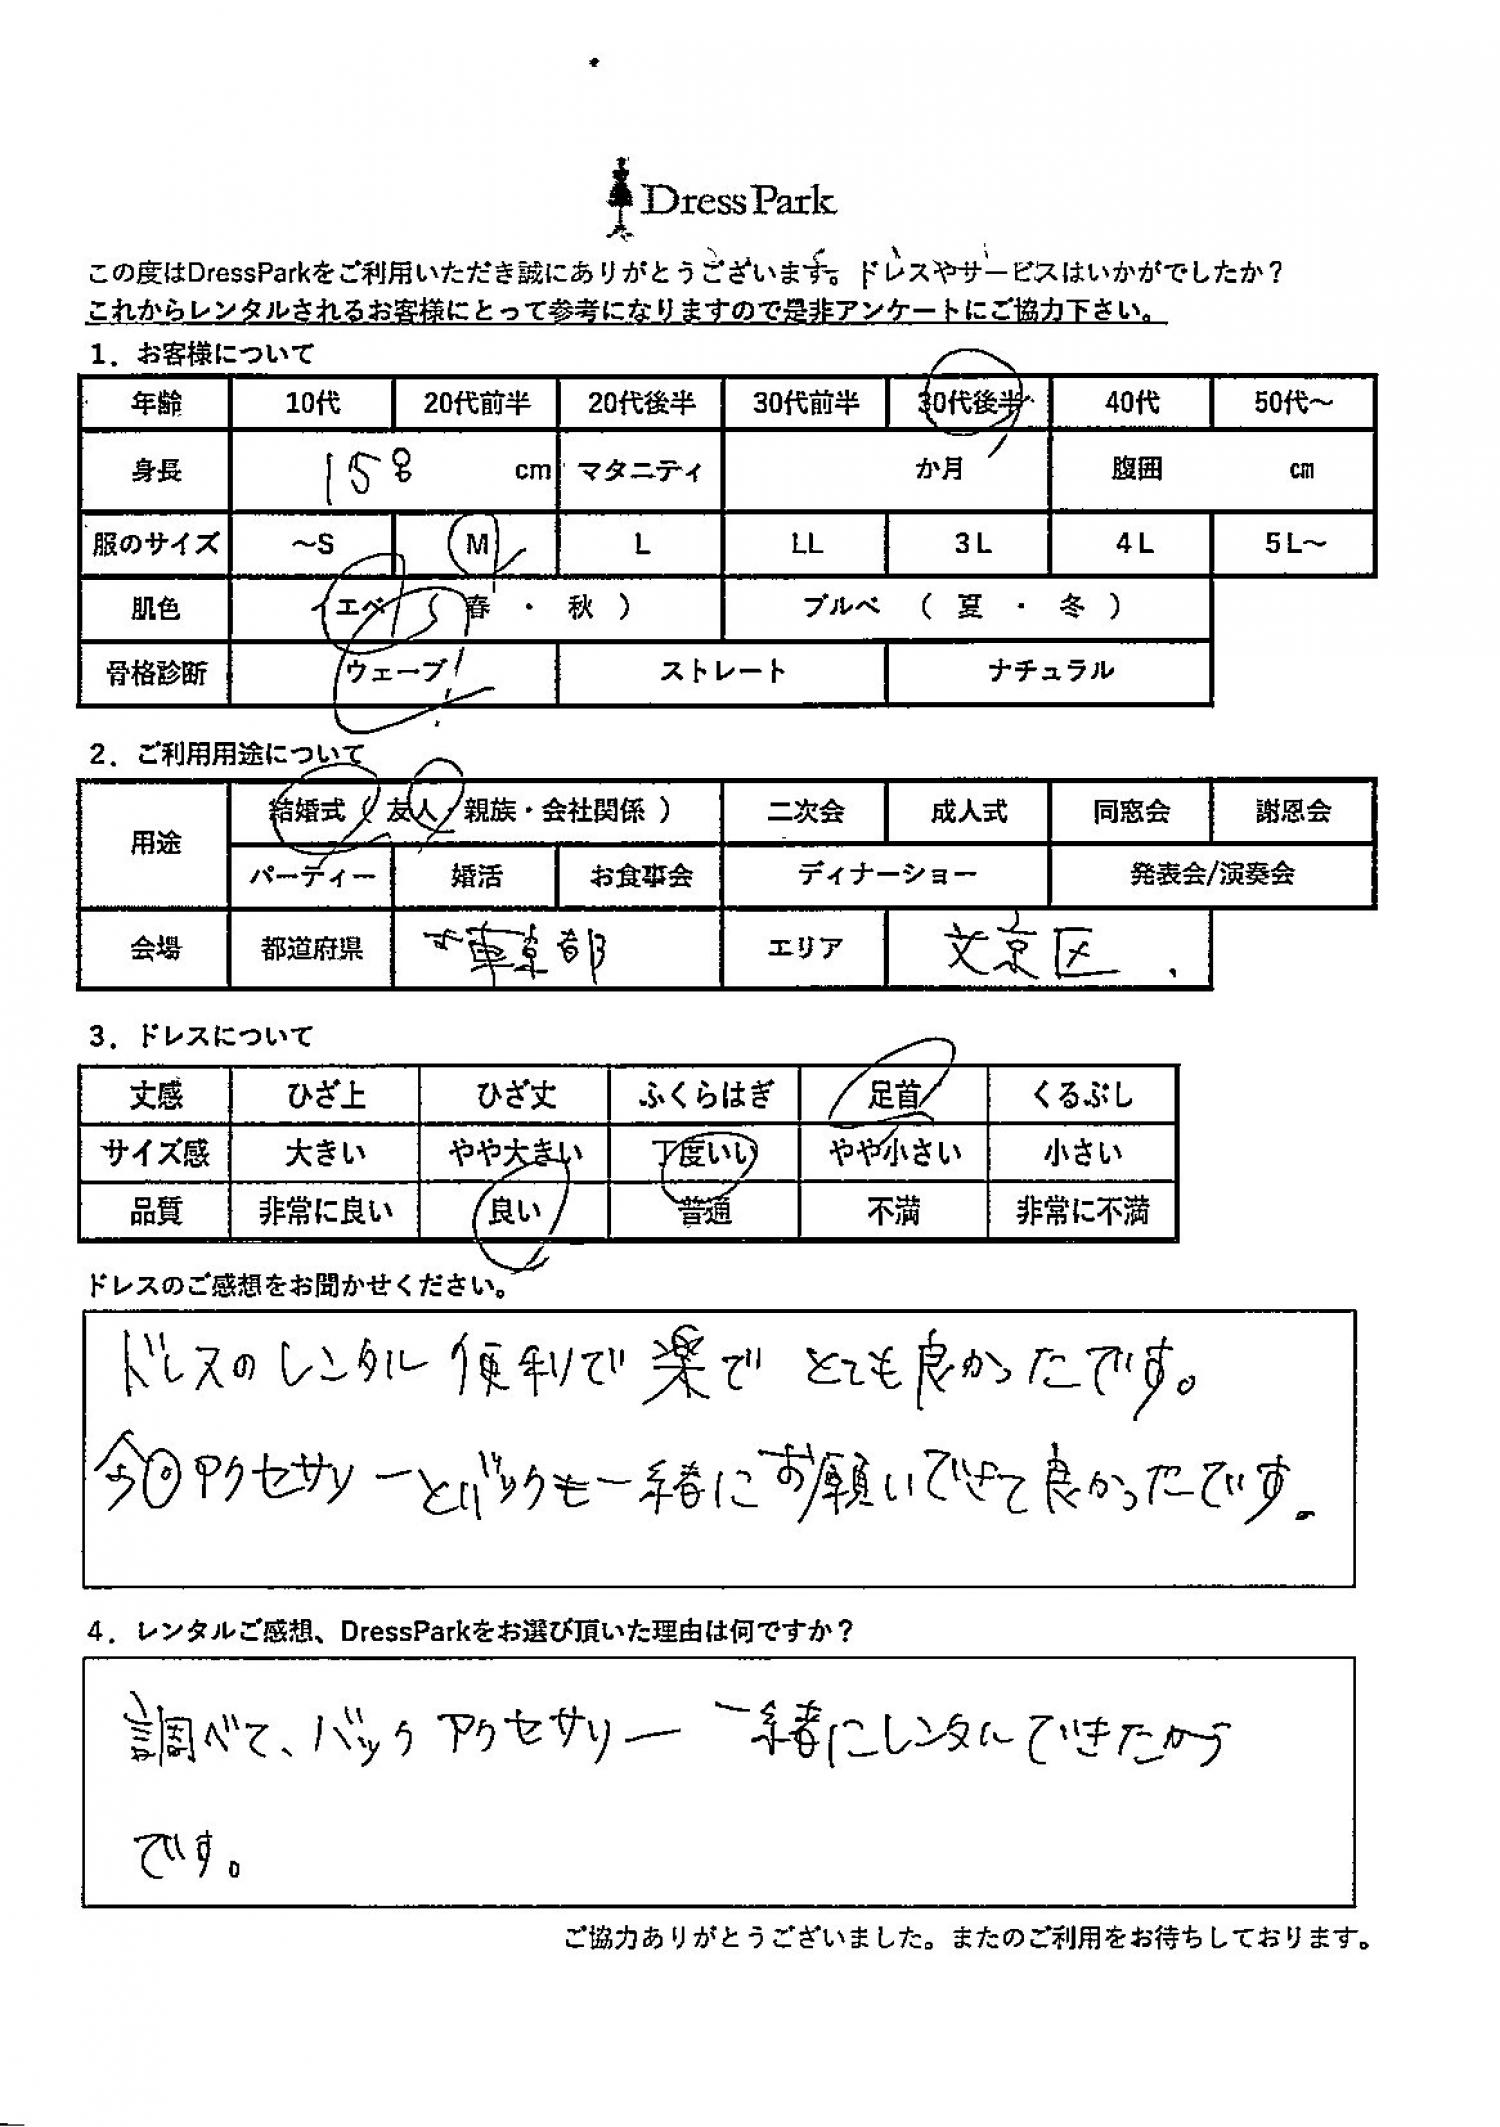 DressPark
この度はDressParkをご利用いただき誠にありがとうございます。ドレスやサービスはいかがでしたか？
これからレンタルされるお客様にとって参考になりますので是非アンケートにご協力下さい。
1．お客様について
年齢 10代 20代前半 20代後半 30代前半 30代後半 40代 50代～
身長 158 cm マタニティ か月 腹囲 ㎝
服のサイズ ～S M L LL 3L 4L 5L～
肌色 イエベ （ 春 ・ 秋 ） ブルベ （ 夏 ・ 冬 ）
骨格診断 ウェーブ ストレート ナチュラル
2．ご利用用途について
用途 結婚式（ 友人・親族・会社関係 ） 二次会 成人式 同窓会 謝恩会
パーティー 婚活 お食事会 ディナーショー 発表会/演奏会
会場 都道府県 東京都 エリア 文京区
3．ドレスについて
丈感 ひざ上 ひざ丈 ふくらはぎ 足首 くるぶし
サイズ感 大きい やや大きい 丁度いい やや小さい 小さい
品質 非常に良い 良い 普通 不満 非常に不満
ドレスのご感想をお聞かせください。
ドレスのレンタル便利で楽で とても良かったです。
今回アクセサリーとバックも一緒にお願いできて良かったです。
4．レンタルご感想、DressParkをお選び頂いた理由は何ですか？
調べて、バック アクセサリー 一緒にレンタルできたから
です。
ご協力ありがとうございました。またのご利用をお待ちしております。